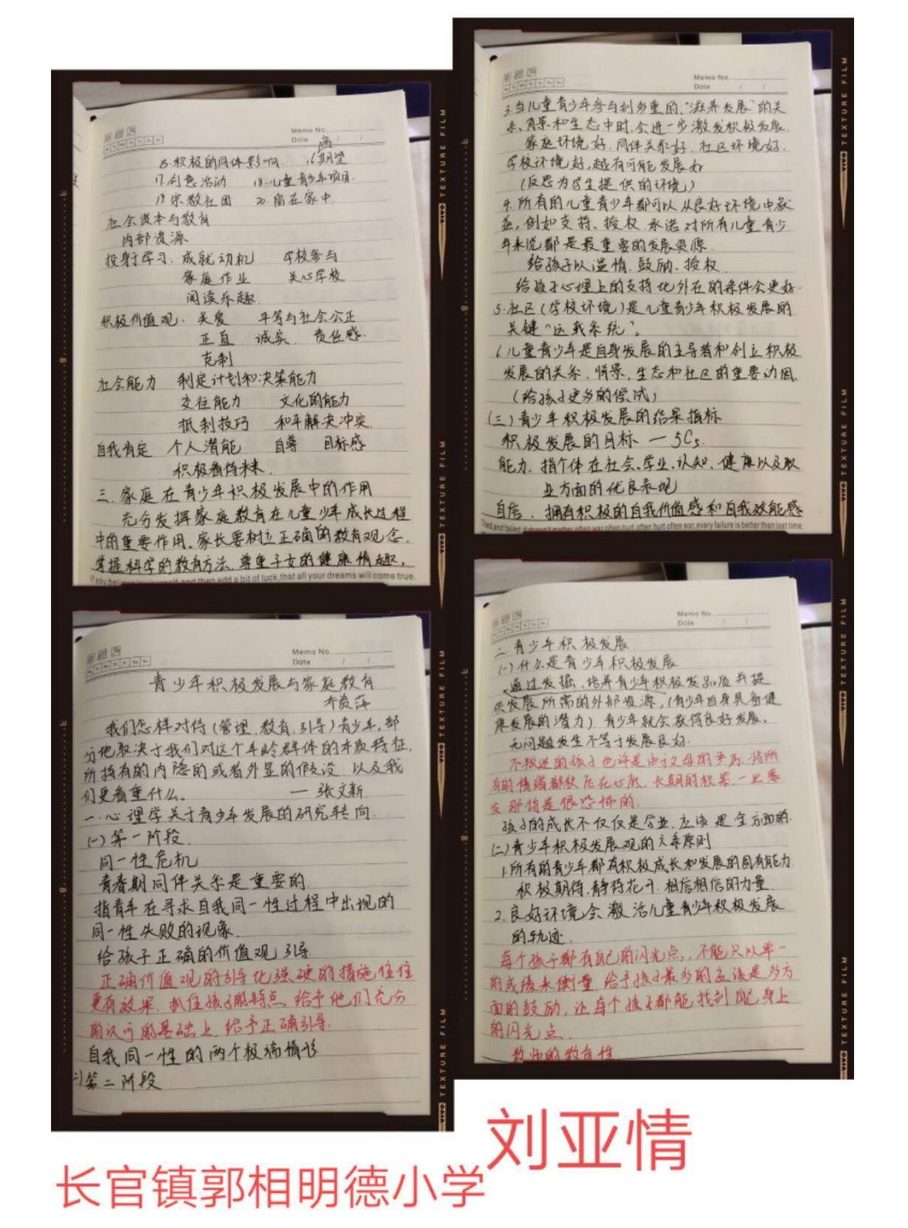 Memo No.
Date / /
15.积极的同伴影响. 16高期望
17.创意活动 18.儿童青少年项目.
19.宗教社团 20.陪在家中.
社会资本与教育
内部资源
投身于学习: 成就动机 学校参与
家庭作业 关心学校
阅读乐趣.
积极价值观: 关爱 平等与社会公正
正直 诚实. 责任感.
克制
社会能力 制定计划和决策能力
交往能力 文化的能力
抵制技巧 和平解决冲突.
自我肯定 个人潜能 自尊 目标感
积极看待未来.
三.家庭在青少年积极发展中的作用
充分发挥家庭教育在儿童少年成长过程
中的重要作用.家长要树立正确的教育观念.
掌握科学的教育方法.尊重子女的健康情趣,
and then add a bit of luck, that all your dreams will come true.
Memo No.
Date / /
3.当儿童青少年参与到多重的,“滋养发展”的关
系、情景和生态中时.会进一步激发积极发展.
家庭环境好.同伴关系好.社区环境好.
学校环境好,越有可能发展好
(反思为学生提供的环境)
4.所有的儿童青少年都可以从良好环境中获
益,例如支持、授权.承诺.对所有儿童青少
年来说都是最重要的发展资源.
给孩子以温情.鼓励.授权.
给孩子心理上的支持比外在的条件会更好.
5.社区(学校环境)是儿童青少年积极发展的
关键“运载系统”。
6.儿童青少年是自身发展的主导者和创立积极
发展的关系.情景.生态和社区的重要动因.
(给孩子更多的尝试)
(三)青少年积极发展的结果指标
积极发展的目标 — 5Cs
能力.指个体在社会.学业.认知.健康以及职
业方面的优良表现
自信. 拥有积极的自我价值感和自我效能感
every failure is better than last time.
Memo No.
Date / /
青少年积极发展与家庭教育
我们怎样对待(管理.教育.引导)青少年,部
分地取决于我们对这个年龄群体的本质特征.
所持有的内隐的或者外显的假设.以及我
们更看重什么。 — 张文新.
一.心理学关于青少年发展的研究转向.
(一)第一阶段.
同一性危机
青春期同伴关系是重要的.
指青年在寻求自我同一性过程中出现的
同一性失败的现象.
给孩子正确的价值观引导.
正确价值观的引导比强硬的措施,往往
更有效果.抓住孩子的特点.给予他们充分
的认可的基础上.给予正确引导.
自我同一性的两个极端情形
(二)第二阶段
Memo No.
Date / /
二.青少年积极发展.
(一)什么是青少年积极发展
通过发掘.培养青少年积极发展品质并提
供发展所需的外部资源,(青少年自身具备健
康发展的潜力)青少年就会获得良好发展。
无问题发生不等于发展良好.
孩子的成长不仅仅是学业.应该是全方面的.
(二)青少年积极发展观的六条原则
1.所有的青少年都有积极成长和发展的固有能力.
积极期待.静待花开.相信相信的力量.
2.良好环境会激活儿童青少年积极发展
的轨迹.
每个孩子都有自己的闪光点,不能只以单一
的成绩来衡量.给予孩子最多的应该是多方
面的鼓励,让每个孩子都能找到自己身上
的闪光点.
教师的教育性
vivo TEXTURE FILM
刘亚情
长官镇郭相明德小学